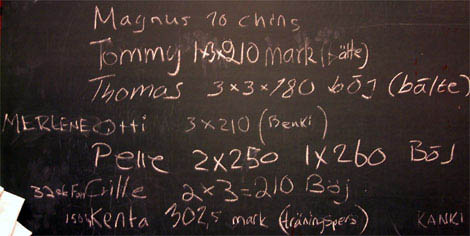 Magnus 10 chins
Tommy 1x3x210 mark (bälte)
Thomas 3x3x180 böj (bälte)
MERLENE Otti 3x210 (Benki)
Pelle 2x250 1x260 Böj
Frille 2x3=210 Böj
150 Kenta 302,5 mark (träningspers) KANKI